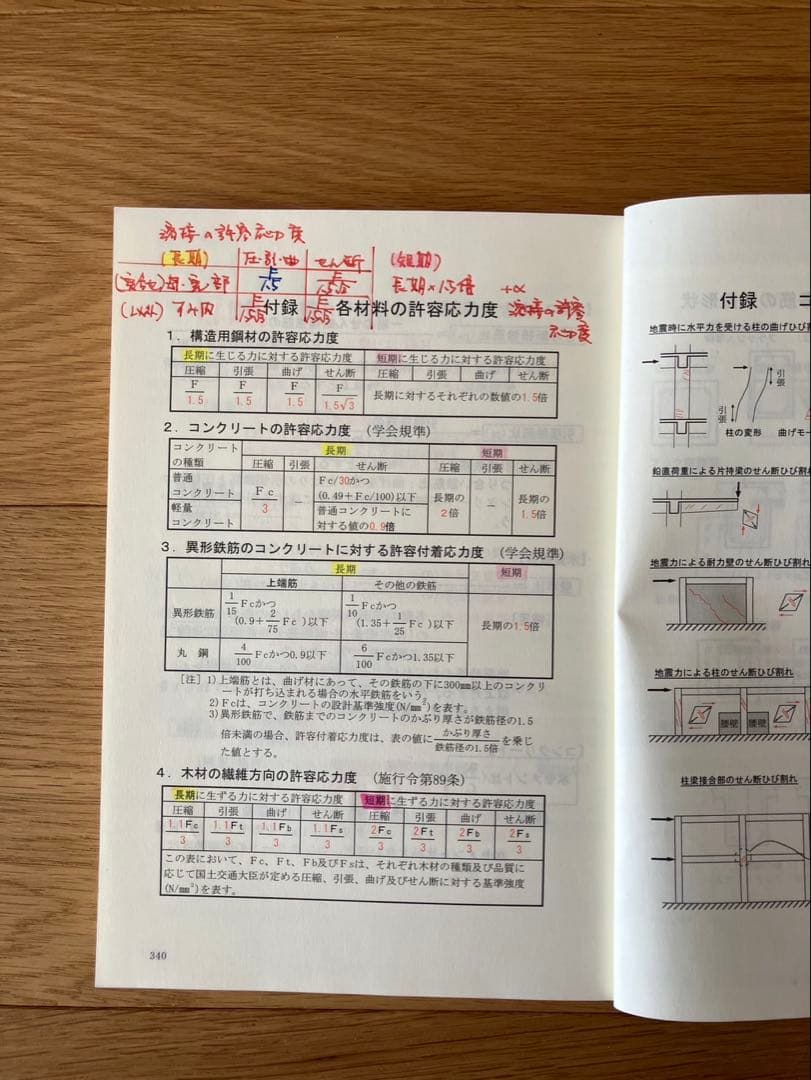 溶接の許容応力度
(長期) 圧・引・曲 せん断 (短期)
F/1.5 F/1.5√3 長期×1.5倍 +α
すみ肉 F/1.5√3 F/1.5√3 溶接の許容
応力度
付録 各材料の許容応力度
1．構造用鋼材の許容応力度
長期に生じる力に対する許容応力度 短期に生じる力に対する許容応力度
圧縮 引張 曲げ せん断 圧縮 引張 曲げ せん断
F/1.5 F/1.5 F/1.5 F/1.5√3 長期に対するそれぞれの数値の1.5倍
2．コンクリートの許容応力度 (学会規準)
コンクリートの種類 長期 短期
圧縮 引張 せん断 圧縮 引張 せん断
普通コンクリート Fc/3 － Fc/30かつ(0.49+Fc/100)以下 長期の2倍 － 長期の1.5倍
軽量コンクリート 普通コンクリートに対する値の0.9倍
3．異形鉄筋のコンクリートに対する許容付着応力度 (学会規準)
長期 短期
上端筋 その他の鉄筋
異形鉄筋 1/15 Fcかつ(0.9+2/75 Fc)以下 1/10 Fcかつ(1.35+1/25 Fc)以下 長期の1.5倍
丸鋼 4/100 Fcかつ0.9以下 6/100 Fcかつ1.35以下
［注］1)上端筋とは、曲げ材にあって、その鉄筋の下に300㎜以上のコンクリ
ートが打ち込まれる場合の水平鉄筋をいう。
2)Fcは、コンクリートの設計基準強度(N/㎜²)を表す。
3)異形鉄筋で、鉄筋までのコンクリートのかぶり厚さが鉄筋径の1.5
倍未満の場合、許容付着応力度は、表の値に かぶり厚さ/鉄筋径の1.5倍 を乗じ
た値とする。
4．木材の繊維方向の許容応力度 (施行令第89条)
長期に生ずる力に対する許容応力度 短期に生ずる力に対する許容応力度
圧縮 引張 曲げ せん断 圧縮 引張 曲げ せん断
1.1Fc/3 1.1Ft/3 1.1Fb/3 1.1Fs/3 2Fc/3 2Ft/3 2Fb/3 2Fs/3
この表において、Fc、Ft、Fb及びFsは、それぞれ木材の種類及び品質に
応じて国土交通大臣が定める圧縮、引張、曲げ及びせん断に対する基準強度
(N/㎜²)を表す。
340
付録
地震時に水平力を受ける柱の曲げひび
引張
引張
柱の変形 曲げモー
鉛直荷重による片持梁のせん断ひび割れ
地震力による耐力壁のせん断ひび割れ
地震力による柱のせん断ひび割れ
腰壁 腰壁
柱梁接合部のせん断ひび割れ